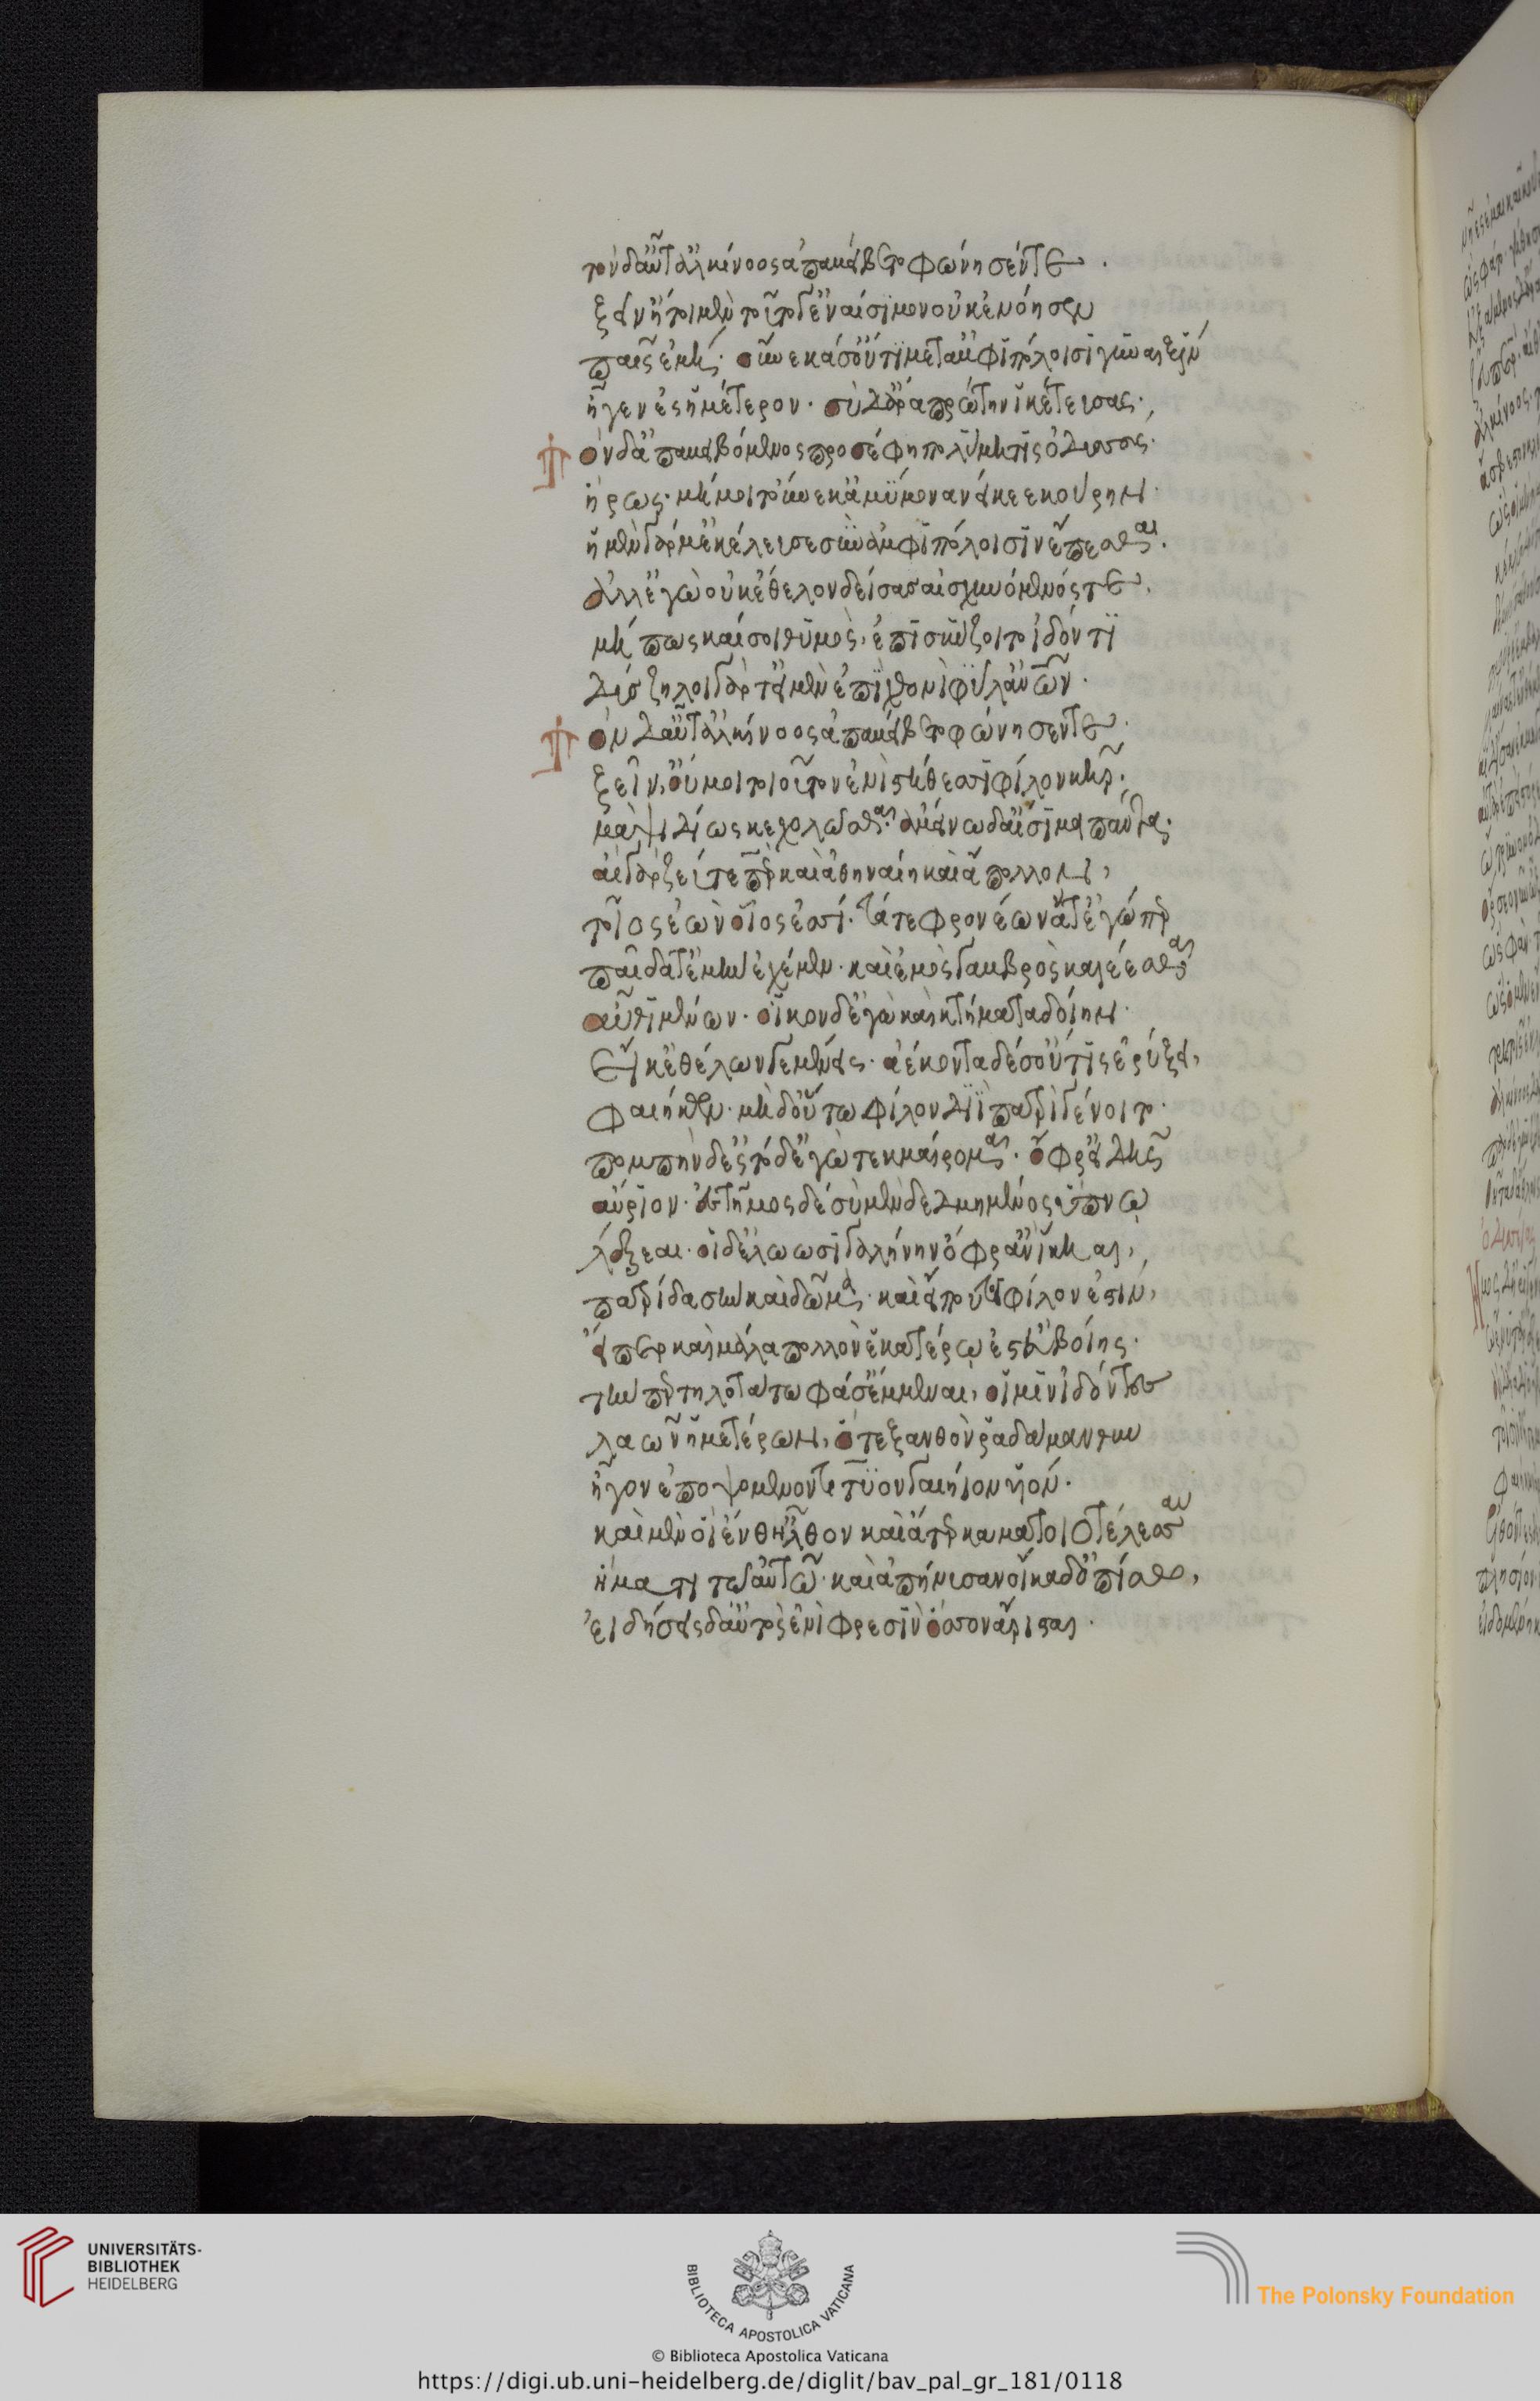 τὸν δ' αὖτ' ἀλκίνοος ἀπαμείβετο φώνησέν τε.
ξεῖν ἤτοι μὲν τοῦτο γ' ἐναίσιμον οὐκ ἐνόησεν
παῖς ἐμή. οὕνεκά σ' οὔτι μετ' ἀμφιπόλοισι γυναιξὶν
ἦγεν ἐς ἡμέτερον. σὺ δ' ἄρα πρώτην ἱκέτευσας.
Τὸν δ' ἀπαμειβόμενος προσέφη πολύμητις ὀδυσσεύς.
ἥρως. μή μοι τοὔνεκ' ἀμύμονα νείκεε κούρην.
ἡ μὲν γάρ μ' ἐκέλευσε σὺν ἀμφιπόλοισιν ἕπεσθαι.
ἀλλ' ἐγὼ οὐκ ἔθελον δείσας αἰσχυνόμενός τε.
μή πως καί σοι θυμὸς, ἐπισκύζοιτο ἰδόντι
δύσζηλοι γάρ τ' εἰμὲν ἐπὶ χθονὶ φῦλ' ἀνθρώπων.
Τὸν δ' αὖτ' ἀλκίνοος ἀπαμείβετο φώνησέν τε.
ξεῖν, οὔ μοι τοιοῦτον ἐνὶ στήθεσσι φίλον κῆρ.
μαψιδίως κεχολῶσθαι. ἀμείνω δ' αἴσιμα πάντα.
αἲ γὰρ ζεῦ τε πάτερ καὶ ἀθηναίη καὶ ἄπολλον,
τοῖος ἐὼν οἷός ἐσσί. τά τε φρονέων ἅ τ' ἐγώ περ
παῖδα τ' ἐμὴν ἐχέμεν. καὶ ἐμὸς γαμβρὸς καλέεσθαι
αὖθι μένων. οἶκον δ' ἐγὼ καὶ κτήματα δοίην.
εἴ κ' ἐθέλων γε μένοις. ἀέκοντα δέ σ' οὔτις ἐρύξει,
φαιήκων. μὴ δ' οὕτω φίλον διὶ πατρὶ γένοιτο.
πομπὴν δ' ἐς τόδ' ἐγὼ τεκμαίρομαι. ὄφρ' εἰδῇς
αὔριον. ἐς τῆμος δὲ σὺ μὲν δεδμημένος ὕπνῳ
λέξεαι. οἱ δ' ἐλόωσι γαλήνην ὄφρ' ἂν ἵκηαι,
πατρίδα σὴν καὶ δῶμα. καὶ εἴ που τοι φίλον ἐστίν,
εἴπερ καὶ μάλα πολλὸν ἑκατέρω ἔστ' εὐβοίης.
τὴν περ τηλοτάτω φάσ' ἔμμεναι, οἵ μιν ἴδοντο
λαῶν ἡμετέρων, ὅτε ξανθὸν ῥαδάμανθυν
ἦγον ἐποψόμενον τιτυὸν γαιήιον υἱόν.
καὶ μὲν οἱ ἔνθ' ἦλθον καὶ ἄτερ καμάτοιο τέλεσσαν
ἤματι τῷ αὐτῷ. καὶ ἀπήνυσαν οἴκαδ' ὀπίσσω,
εἰδήσεις δ' αὐτὸς ἐνὶ φρεσὶν ὅσσον ἄρισται.
UNIVERSITÄTS-
BIBLIOTHEK
HEIDELBERG
BIBLIOTECA APOSTOLICA VATICANA
The Polonsky Foundation
© Biblioteca Apostolica Vaticana
https://digi.ub.uni-heidelberg.de/diglit/bav_pal_gr_181/0118